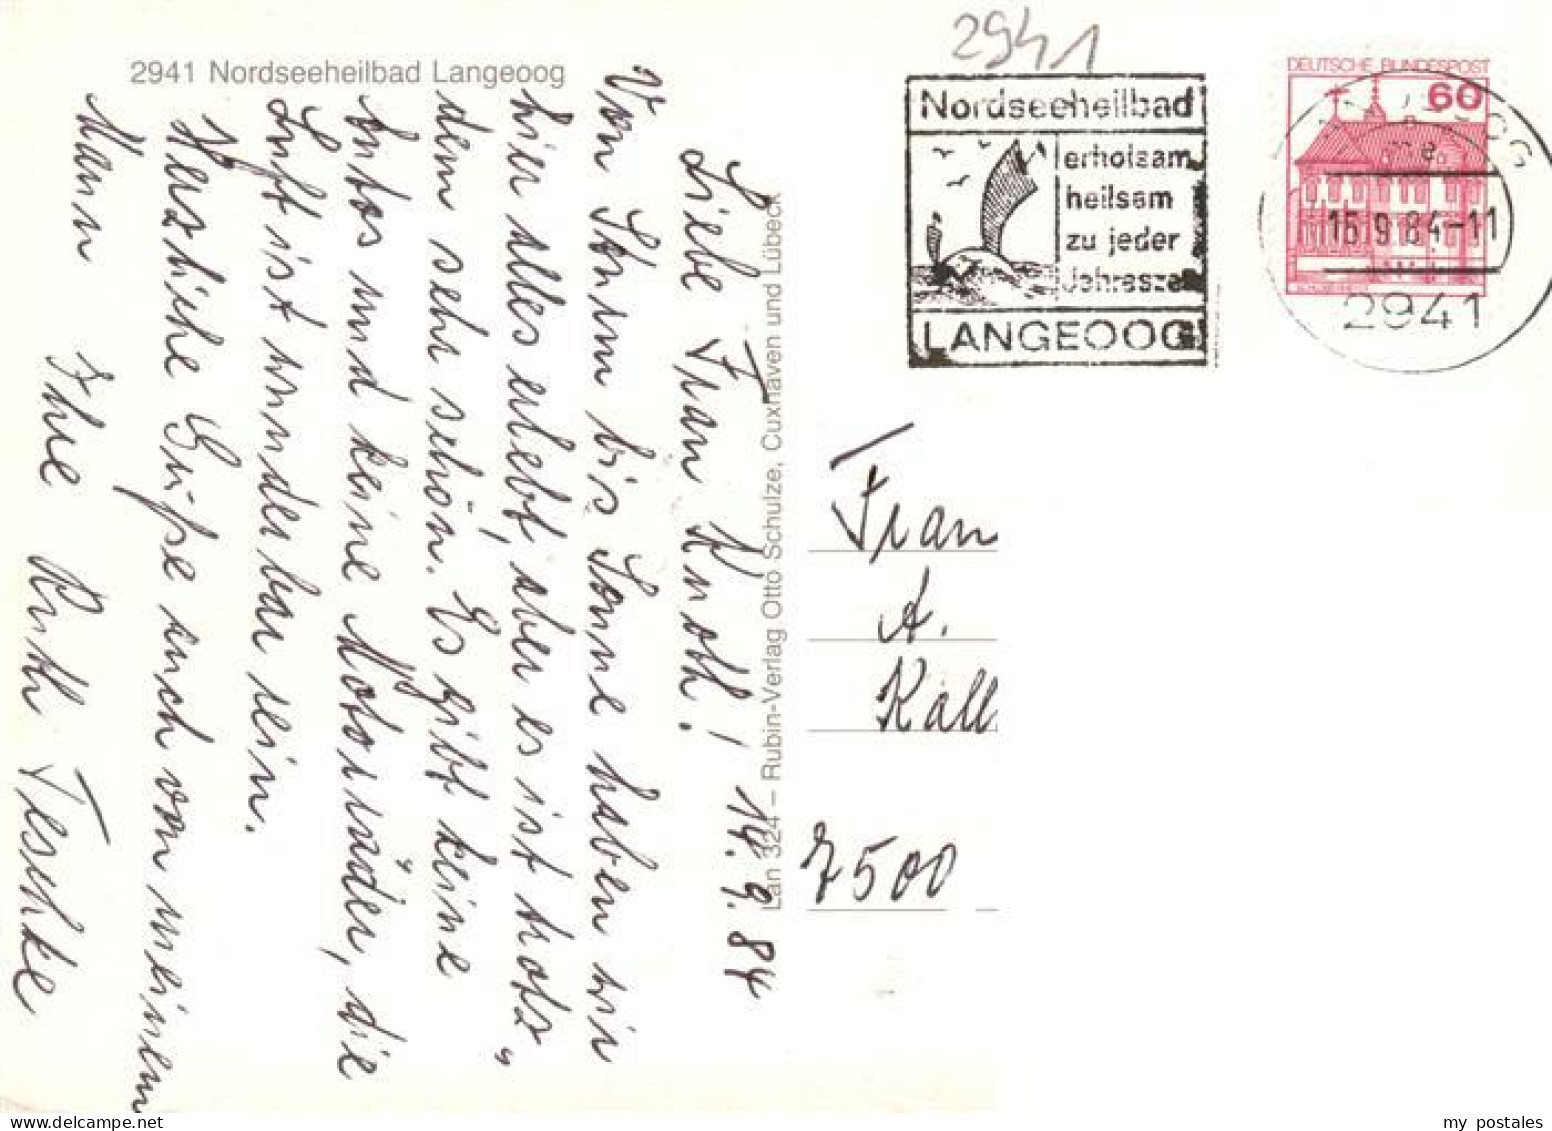 2941 Nordseeheilbad Langeoog
14.9.84
Liebe Frau Knoth!
Von Sturm bis Sonne haben wir
hier alles erlebt, aber es ist trotz-
dem sehr schön. Es gibt keine
Autos und keine Motorräder, die
Luft ist wunderbar rein.
Herzliche Grüße auch von meinem
Mann Ihre Ruth Teschke
Lan 324 – Rubin-Verlag Otto Schulze, Cuxhaven und Lübeck
2941
Nordseeheilbad
erholsam
heilsam
zu jeder
Jahreszeit
LANGEOOG
DEUTSCHE BUNDESPOST
60
LANGEOOG
16.9.84-11
2941
Frau
A.
Kall
7500
my postales